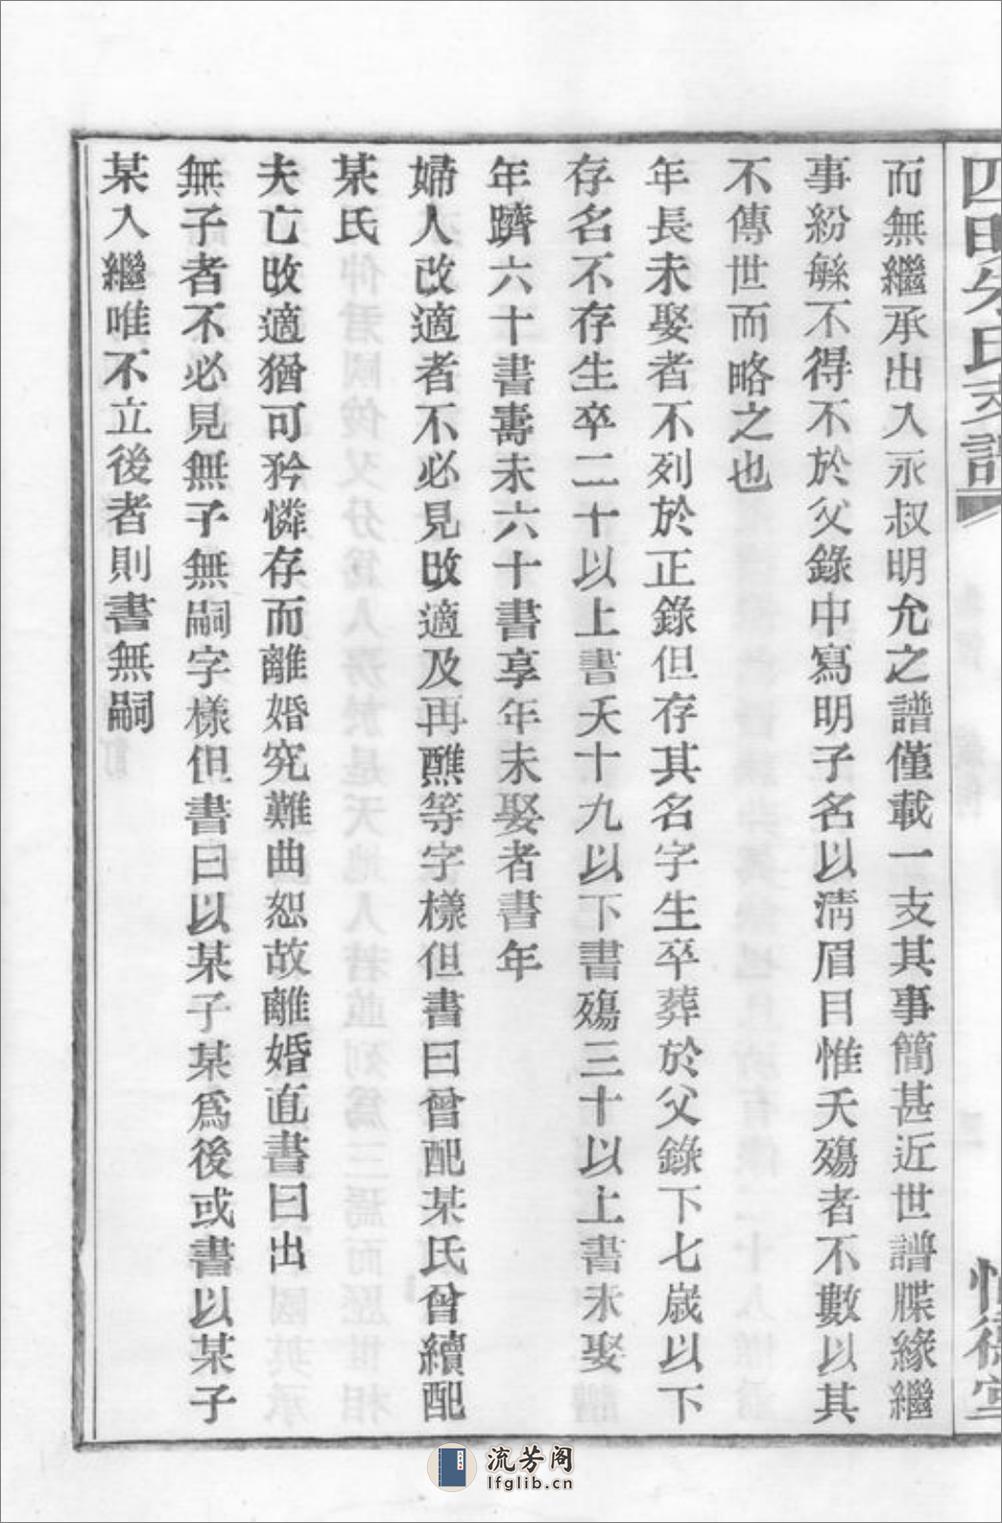 四明朱氏支譜
而無繼承出入永叔明允之譜僅載一支其事簡甚近世譜牒緣繼
事紛緐不得不於父錄中寫明子名以淸眉目惟夭殤者不數以其
不傳世而略之也
年長未娶者不列於正錄但存其名字生卒葬於父錄下七歲以下
存名不存生卒二十以上書夭十九以下書殤三十以上書未娶
年躋六十書壽未六十書享年未娶者書年
婦人改適者不必見改適及再醮等字樣但書曰曾配某氏曾續配
某氏
夫亡改適猶可矜憐存而離婚究難曲恕故離婚直書曰出
無子者不必見無子無嗣字樣但書曰以某子某爲後或書以某子
某入繼唯不立後者則書無嗣
流芳阁
lfglib.cn